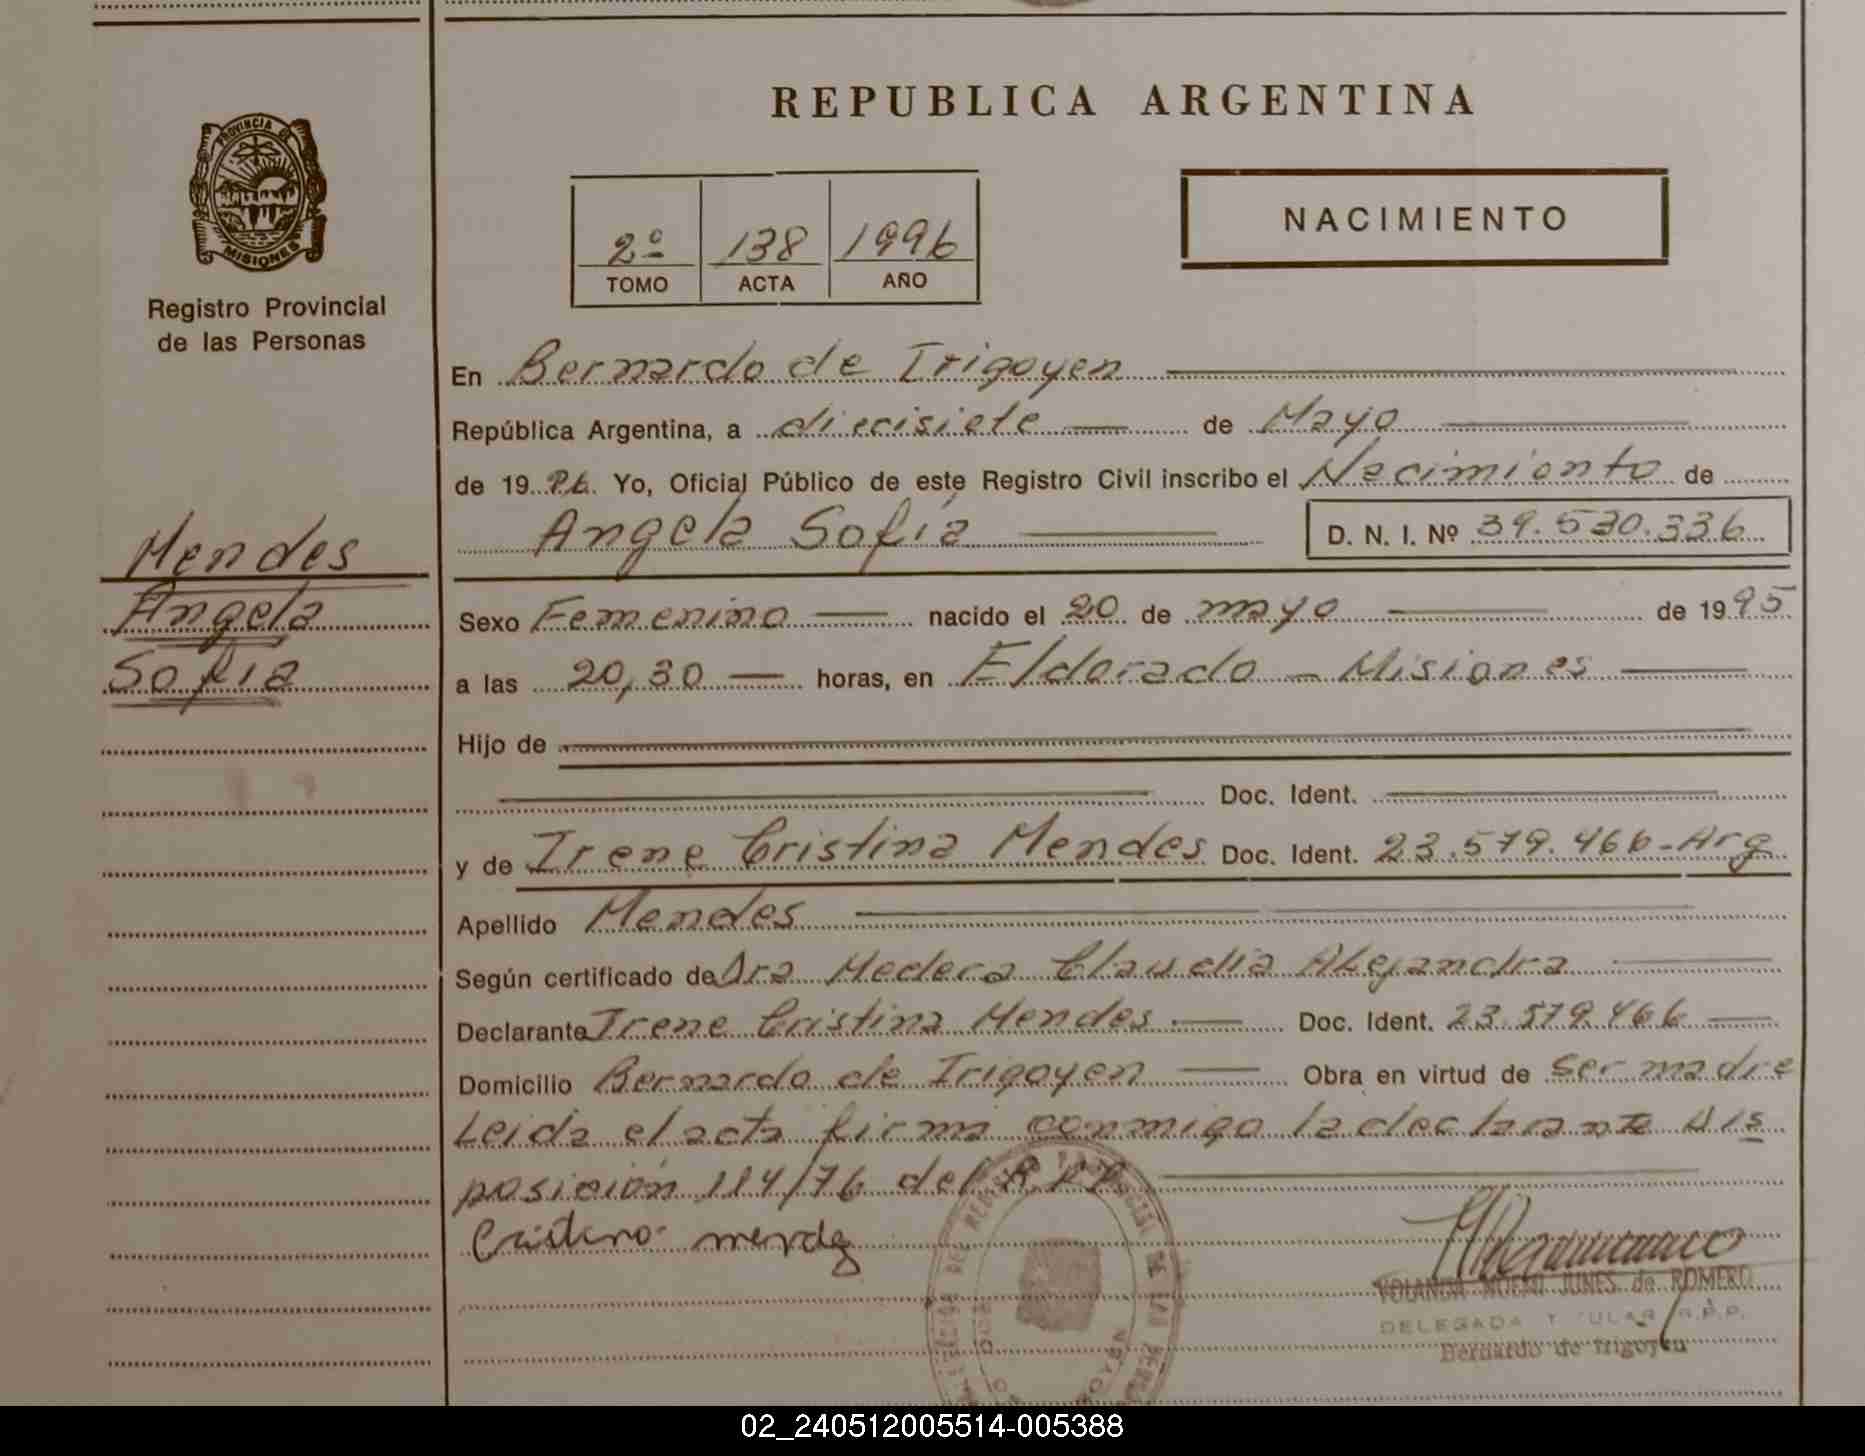 REPUBLICA ARGENTINA
PROVINCIA DE
MISIONES
Registro Provincial
de las Personas
2º 138 1996
TOMO ACTA AÑO
NACIMIENTO
En Bernardo de Irigoyen
República Argentina, a diecisiete de Mayo
de 19 96. Yo, Oficial Público de este Registro Civil inscribo el Nacimiento de
Angela Sofía D. N. I. Nº 39.530.336
Mendes
Angela
Sofía
Sexo Femenino nacido el 20 de mayo de 1995
a las 20,30 horas, en Eldorado - Misiones
Hijo de
Doc. Ident.
y de Irene Cristina Mendes Doc. Ident. 23.579.466-Arg
Apellido Mendes
Según certificado de Dra Medera Claudia Alejandra
Declarante Irene Cristina Mendes Doc. Ident. 23.579.466
Domicilio Bernardo de Irigoyen Obra en virtud de ser madre
Leida el acta firma conmigo la declarante Dis
posición 114/76 del R.P.P.
YOLANDA NOEMI JUNES de ROMERO
DELEGADA TITULAR R.P.P.
Bernardo de Irigoyen
02_240512005514-005388